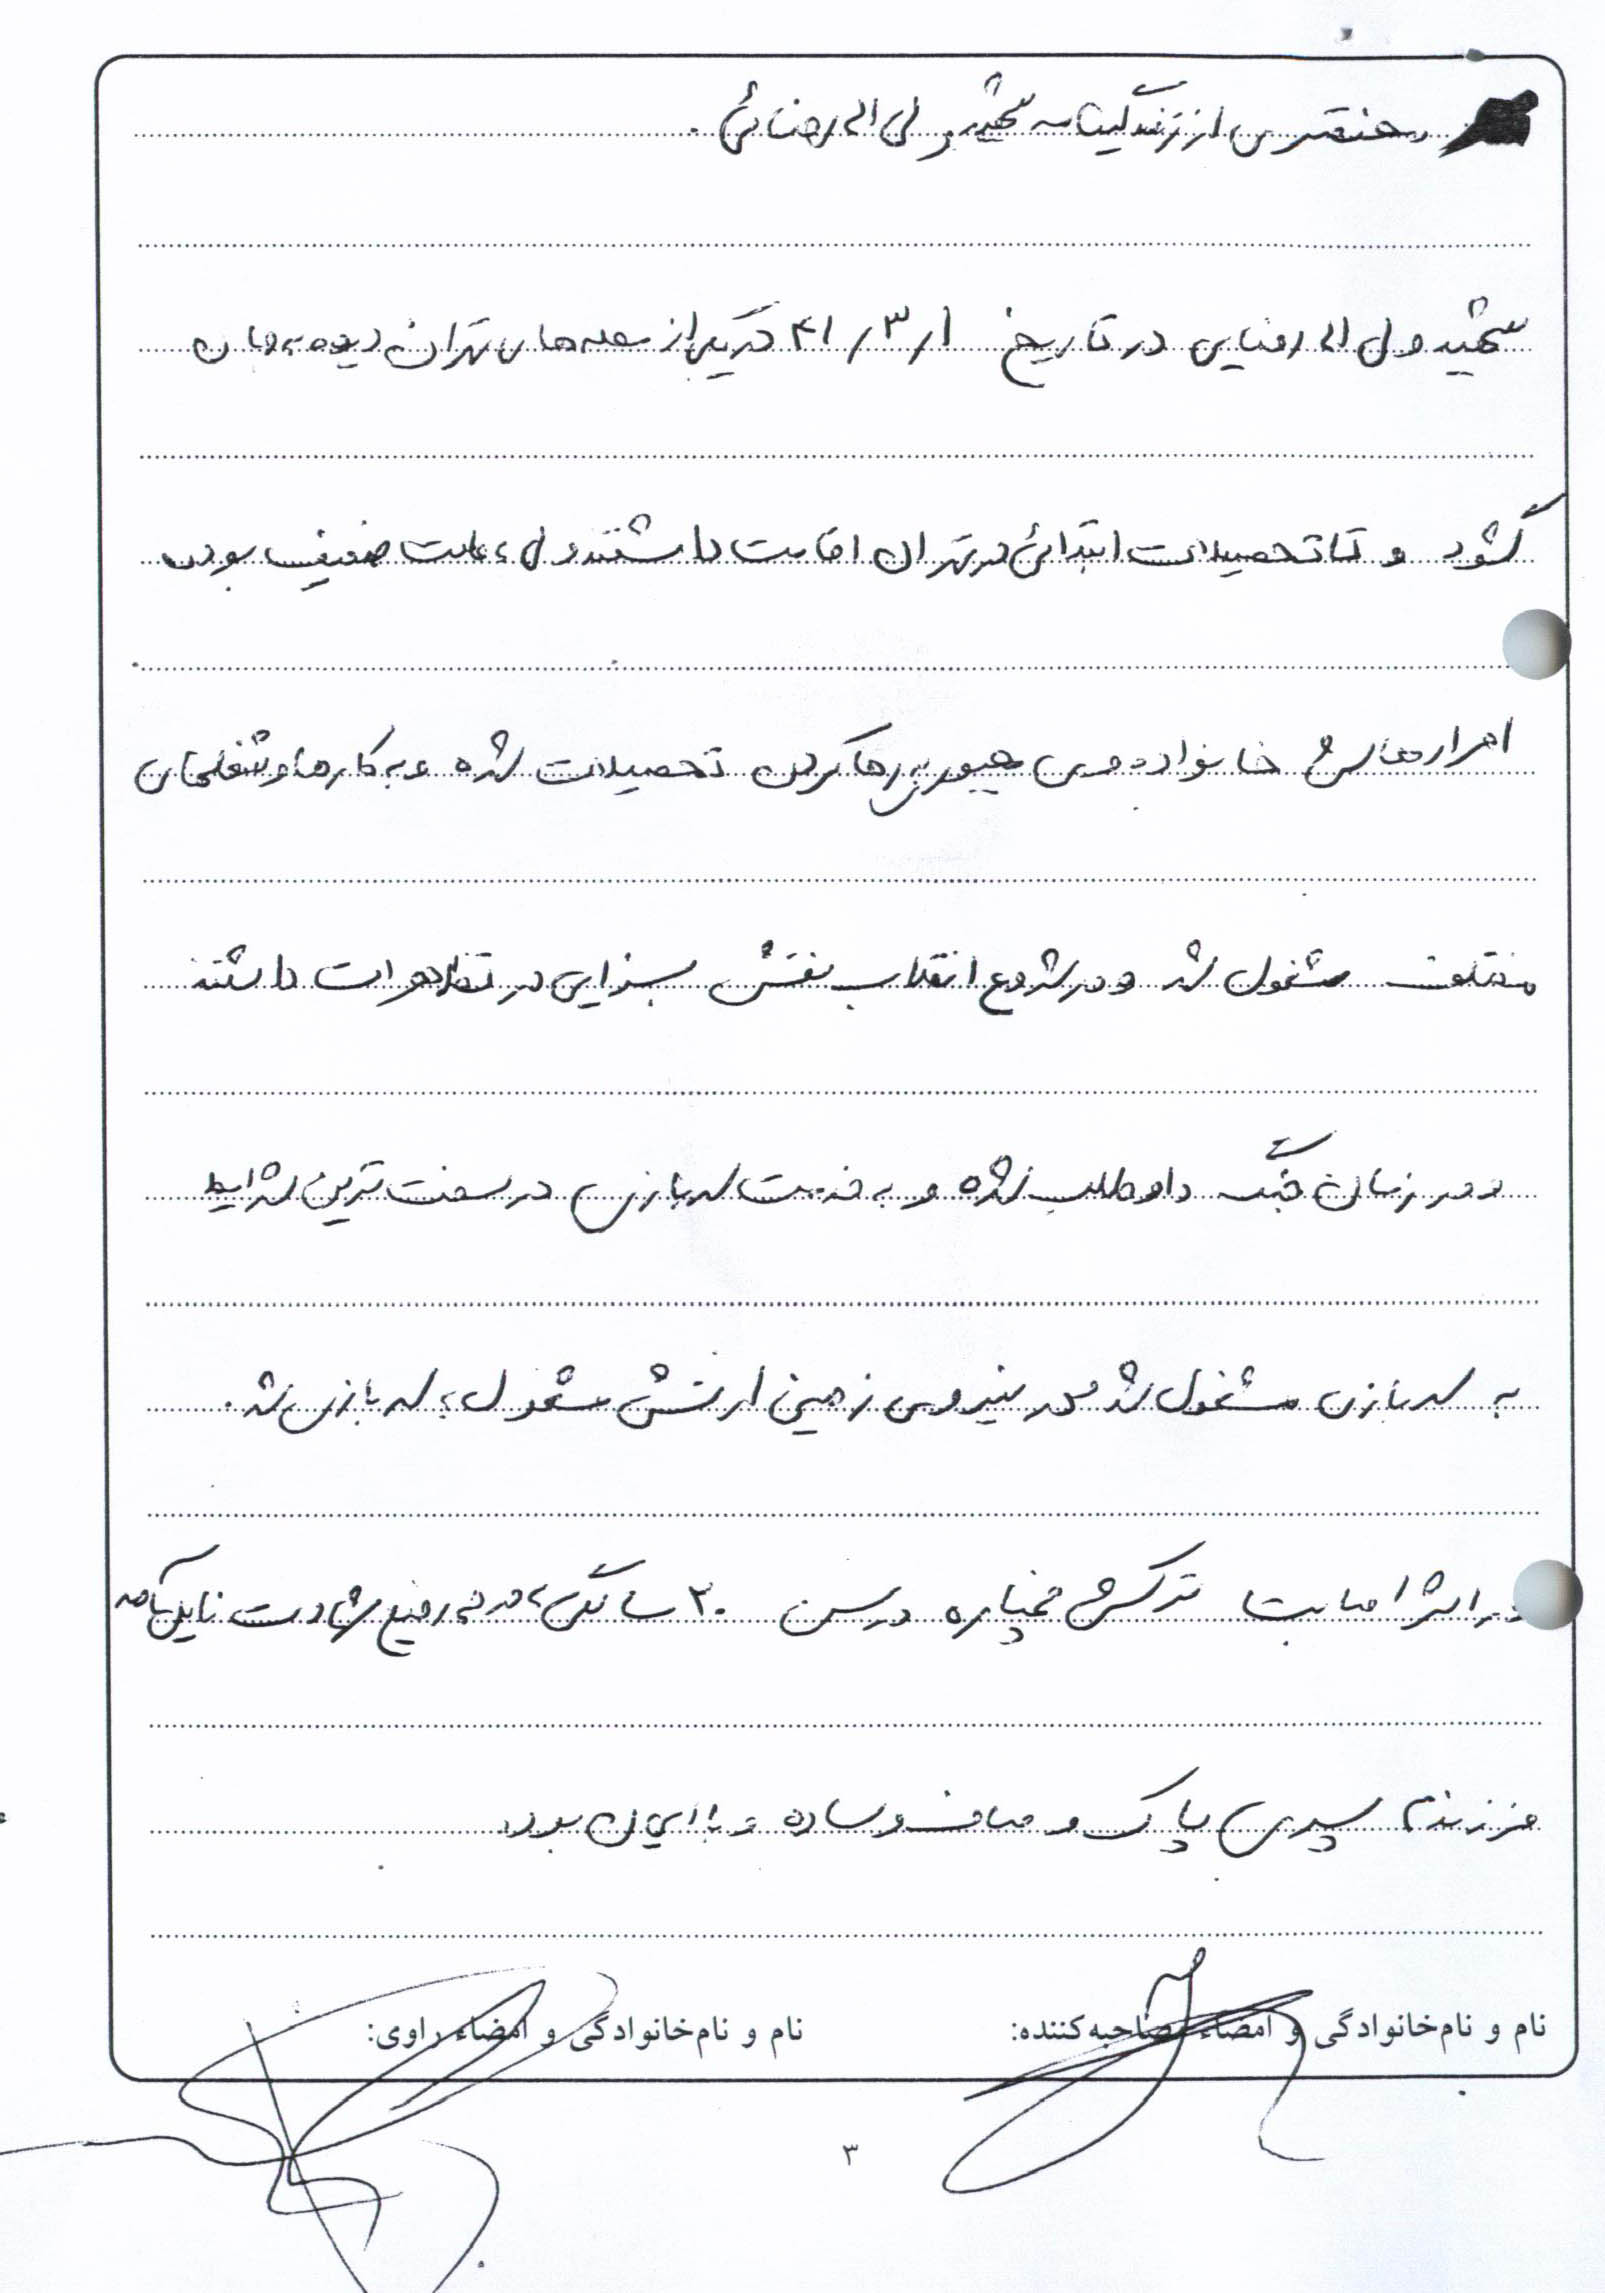 مختصری از زندگینامه شهید ولی اله رضائی .
شهید ولی اله رضایی در تاریخ ۴۱/۳/۱ در یکی از محله های تهران دیده به جهان
گشود و تا تحصیلات ابتدائی در تهران اقامت داشتند ولی بعلت ضعیف بودن
امرار معاش خانواده وی مجبور به رها کردن تحصیلات شده و به کارها و شغلهای
مختلف مشغول شد و در شروع انقلاب نقش بسزایی در تظاهرات داشتند
و در زمان جنگ داوطلب شده و به خدمت سربازی در سخت ترین شرایط
به سربازی مشغول شد و در نیروی زمینی ارتش مشغول به سربازی شد.
در اثر اصابت ترکش خمپاره در سن ۲۰ سالگی به درجه رفیع شهادت نایل آمد
فرزندم پسری پاک و صاف و ساده و با ایمان بود.
نام و نام‌خانوادگی و امضاء مصاحبه‌کننده:
نام و نام‌خانوادگی و امضاء راوی:
۳